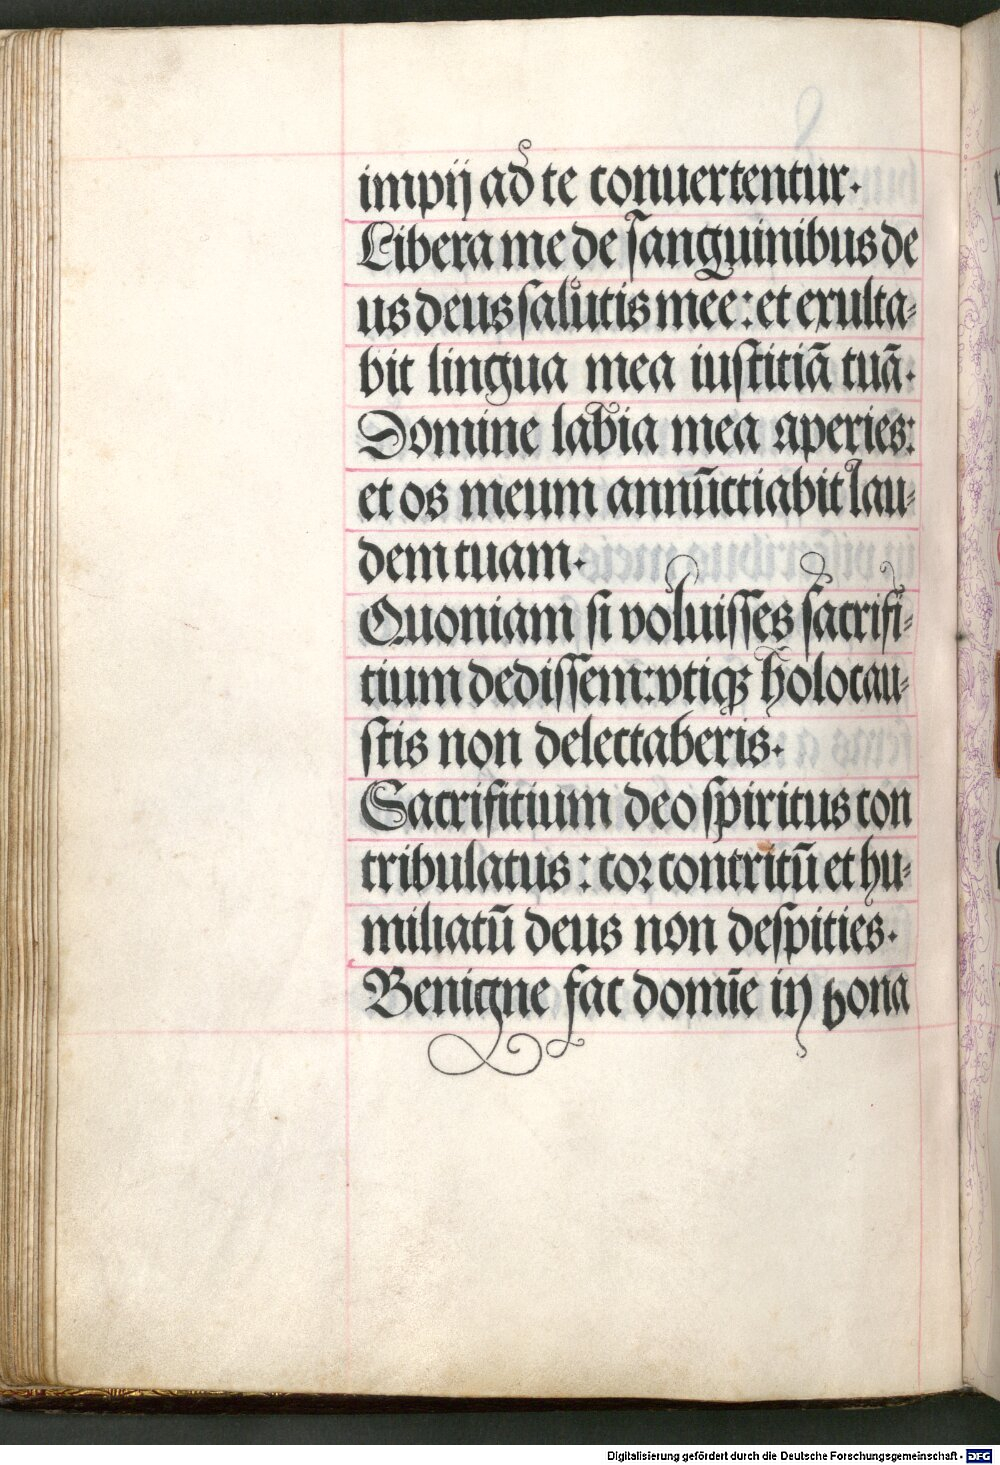 impij ad te conuertentur.
Libera me de sanguinibus de
us deus salutis mee: et exulta-
bit lingua mea iustitiā tuā.
Domine labia mea aperies:
et os meum annūctiabit lau-
dem tuam.
Quoniam si voluisses sacrifi-
cium dedissem: vtiqꝫ holocau-
stis non delectaberis.
Sacrificium deo spiritus con
tribulatus: cor contritū et hu-
miliatū deus non despicies.
Benigne fac domīe in bona
Digitalisierung gefördert durch die Deutsche Forschungsgemeinschaft - DFG